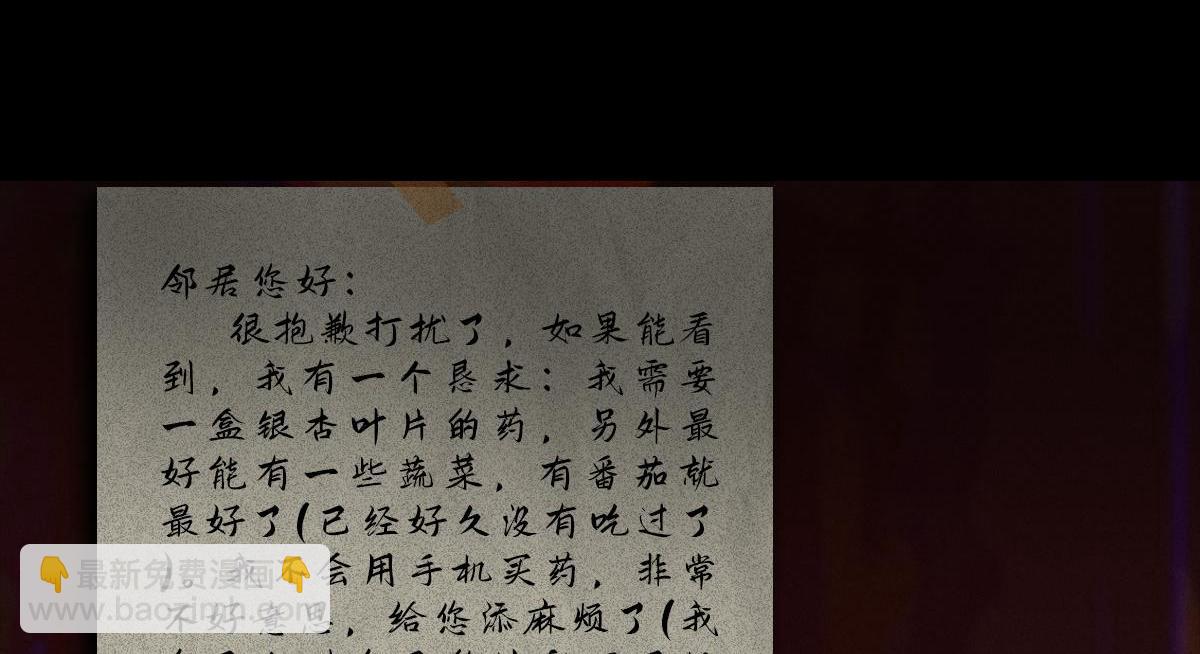 邻居您好：
很抱歉打扰了，如果能看
到，我有一个恳求：我需要
一盒银杏叶片的药，另外最
好能有一些蔬菜，有番茄就
最好了(已经好久没有吃过了
)。我不会用手机买药，非常
不好意思，给您添麻烦了(我
👇最新免费漫画👇
www.baozimh.com